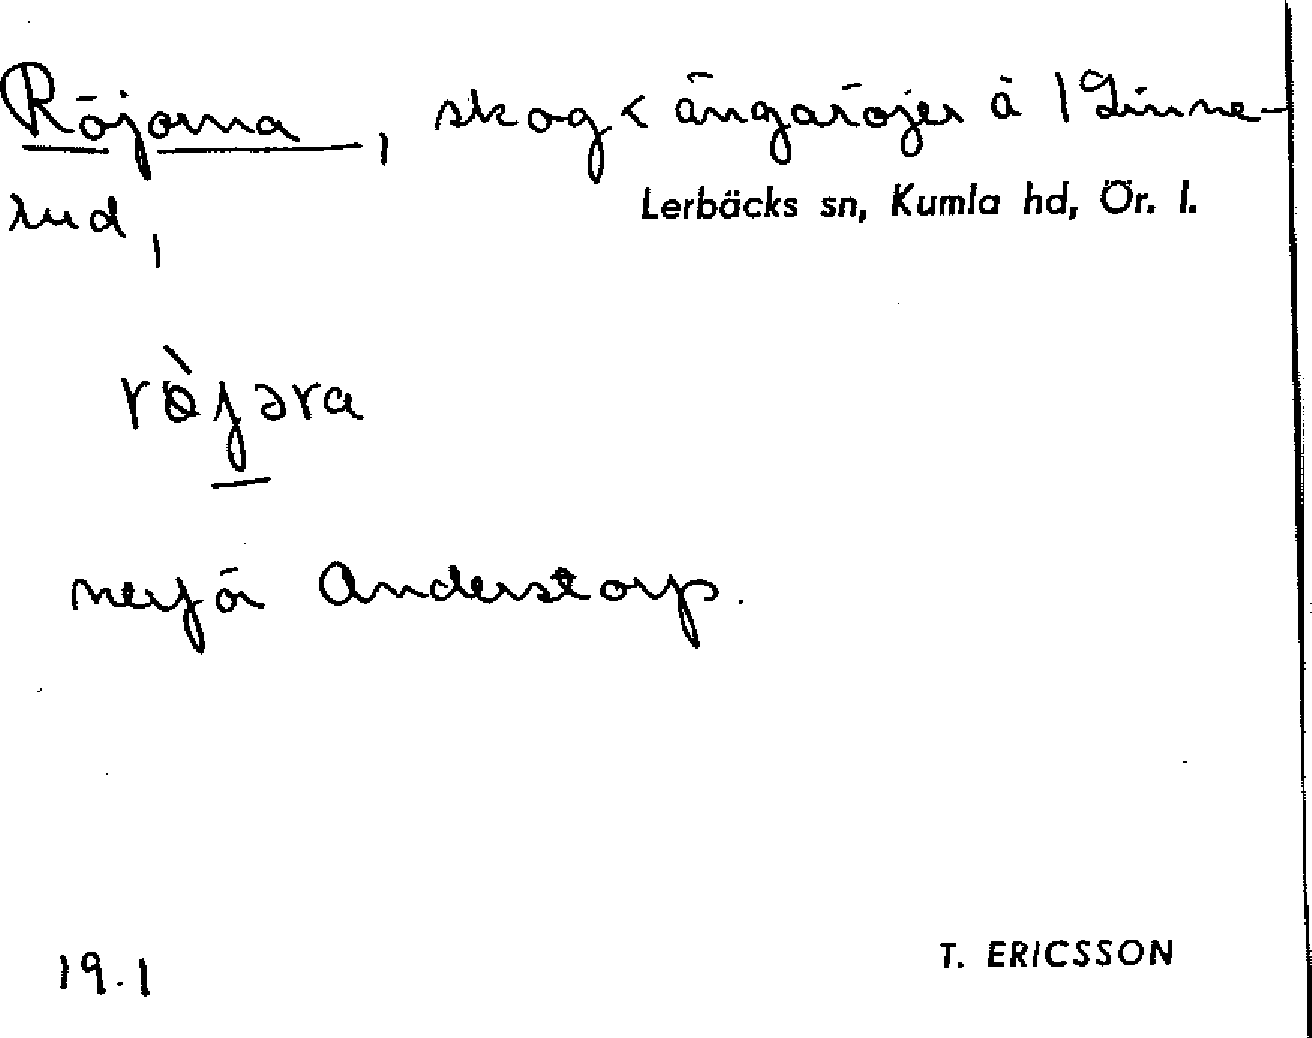 Röjorna, skog < ängaröjer å 1 Linne-
rud,
Lerbäcks sn, Kumla hd, Ör. l.
rö̀jəra
nerför Anderstorp.
19.1
T. ERICSSON